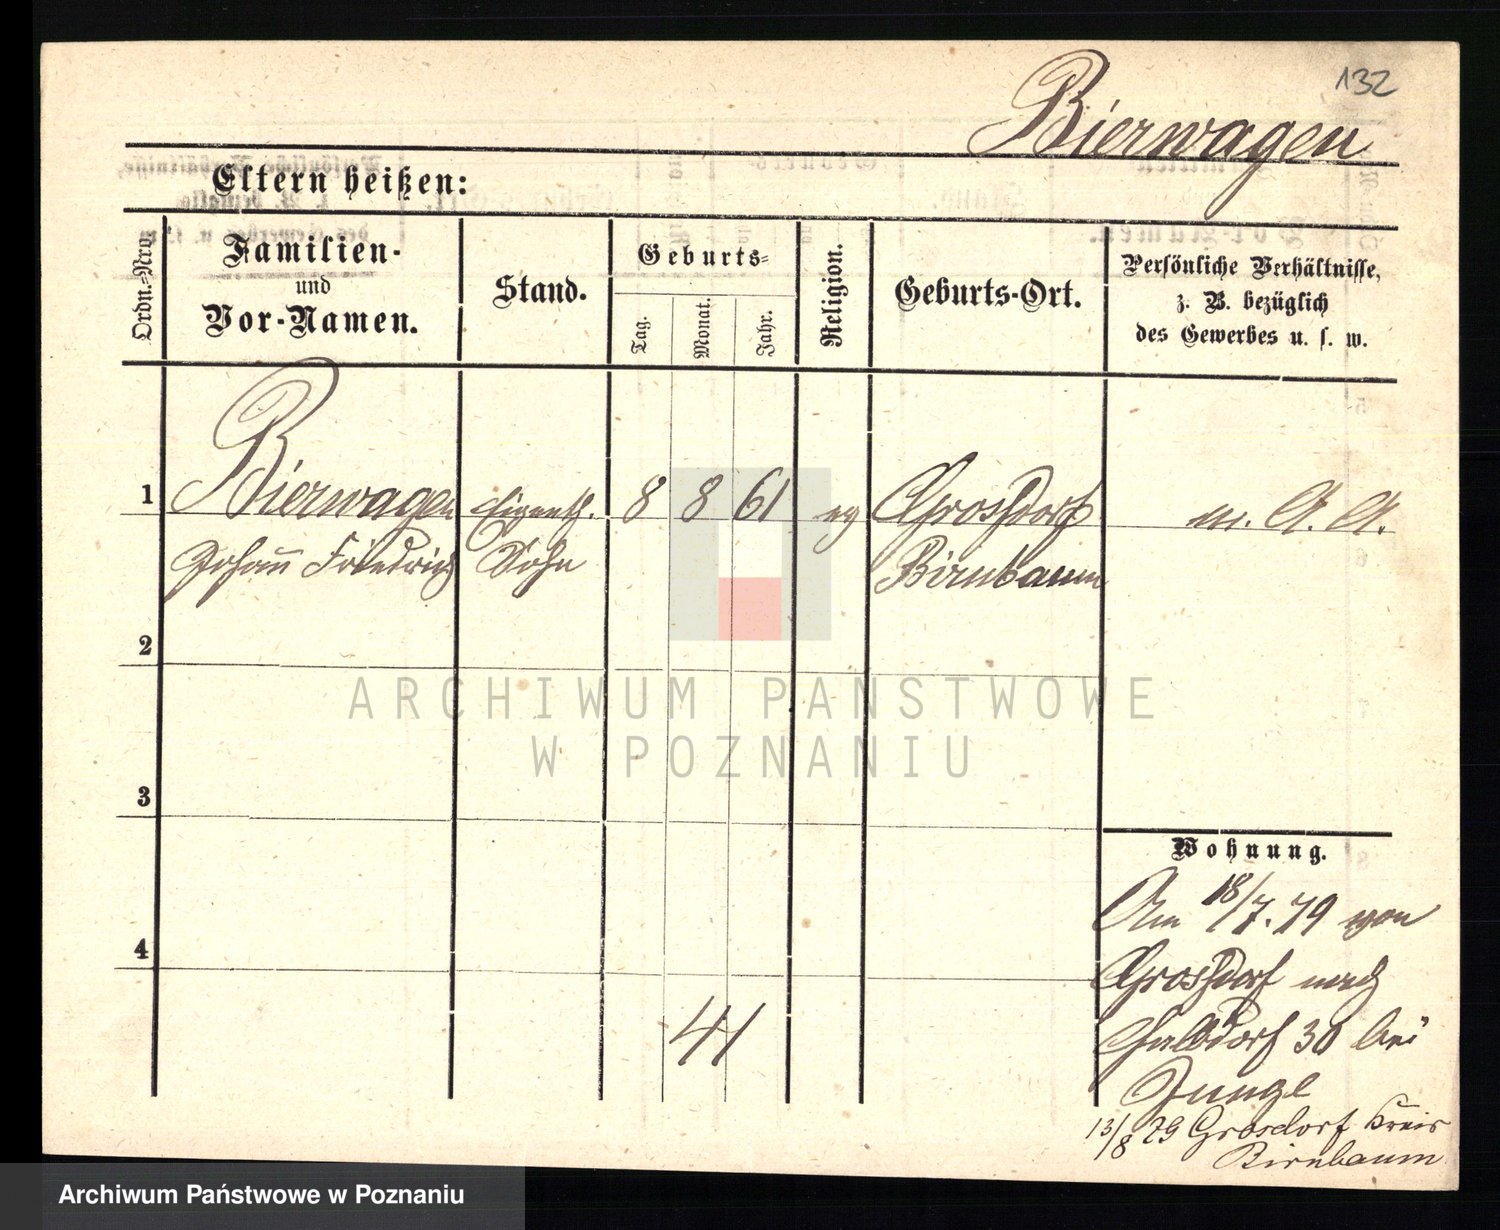 132
Bierwagen
Eltern heißen:
Ordn.-Nro.
Familien-
und
Vor-Namen.
Stand.
Geburts-
Tag.
Monat.
Jahr.
Religion.
Geburts-Ort.
Persönliche Verhältnisse,
z. B. bezüglich
des Gewerbes u. s. w.
1
Bierwagen Eigenth. 8 8 61 ev Grosdorf m. A. A.
Johann Friedrich Sohn Birnbaum
2
3
4
41
Wohnung.
Am 18/7. 79 von
Grosdorf nach
30 bei
Junge
13/8 79 Grosdorf Kreis
Birnbaum
ARCHIWUM PAŃSTWOWE
W POZNANIU
Archiwum Państwowe w Poznaniu